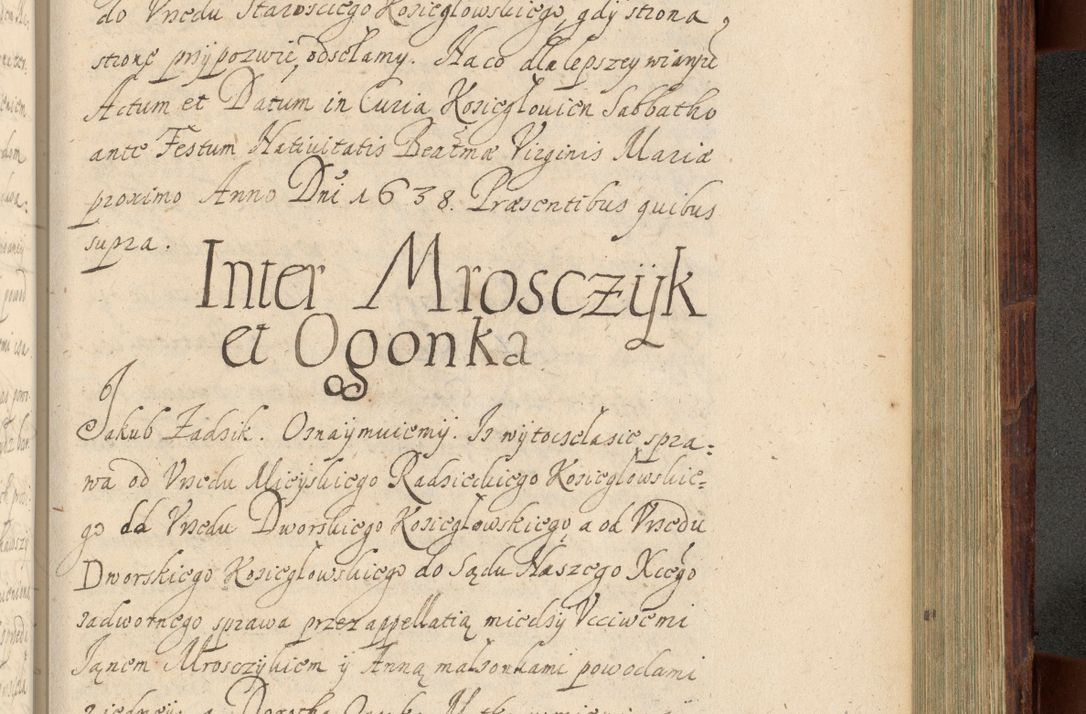 do Vrzędu Starosciego Kosieglowskiego, gdy strona
stronę przypozwie, odsełamy. Na co dla lepszey wiary
Actum et Datum in Curia Kosieglovien Sabbatho
ante Festum Nativitatis Beatmæ Virginis Mariæ
proximo Anno Dni 1638. Præsentibus quibus
supra.
Inter Mrosczÿk
et Ogonka
Jakub Zadzik. Oznaÿmuiemÿ. Iz wÿtoczełasię spra=
wa od Vrzedu Mieÿskiego Radzieckiego Kosieglowskie=
go do Vrzedu Dworskiego Kosieglowskiego, a od Vrzedu
Dworskiego Kosieglowskiego do Sądu Naszego Xcego
zadwornego sprawa przez appellatią międzÿ Vcciwemi
Janem Mrosczykiem ÿ Anną małzonkami powodami
z iedneÿ, a Dorothą